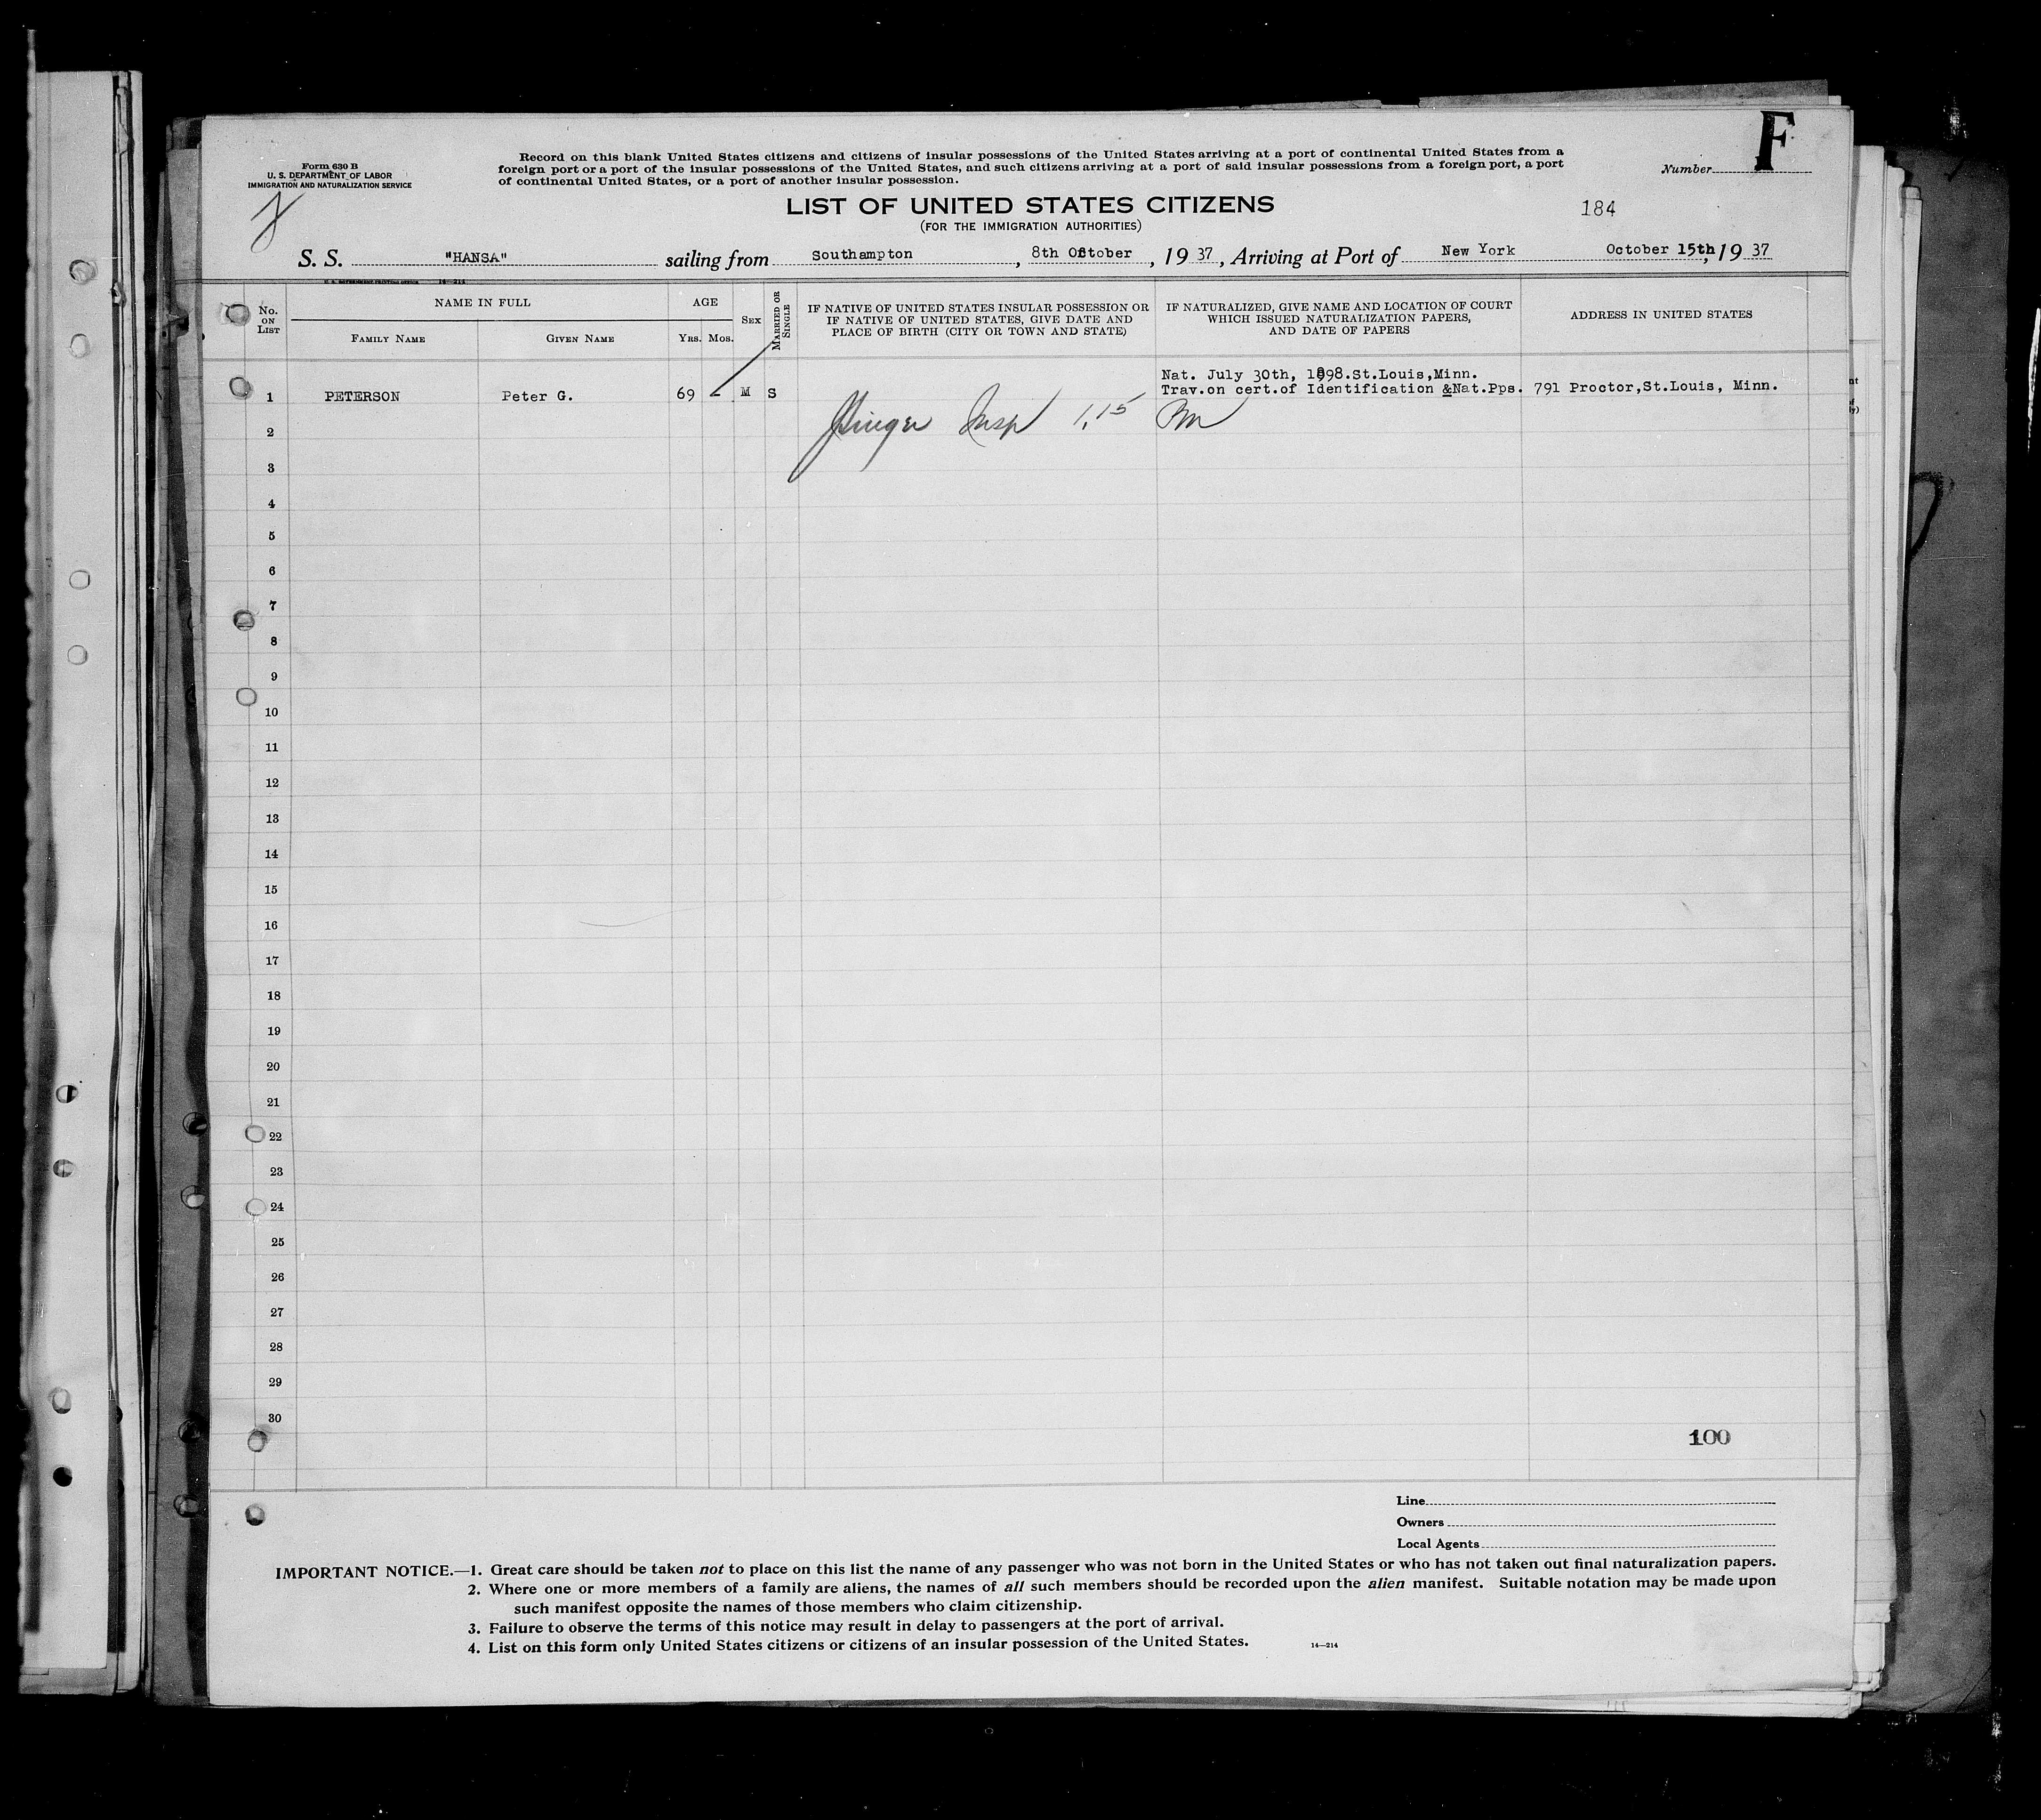 F
Form 630 B
U. S. DEPARTMENT OF LABOR
IMMIGRATION AND NATURALIZATION SERVICE
Record on this blank United States citizens and citizens of insular possessions of the United States arriving at a port of continental United States from a
foreign port or a port of the insular possessions of the United States, and such citizens arriving at a port of said insular possessions from a foreign port, a port
of continental United States, or a port of another insular possession.
Number
LIST OF UNITED STATES CITIZENS
184
(FOR THE IMMIGRATION AUTHORITIES)
S. S. "HANSA" sailing from Southampton, 8th October, 1937, Arriving at Port of New York October 15th, 1937
U. S. GOVERNMENT PRINTING OFFICE 14—214
No. ON LIST
NAME IN FULL
FAMILY NAME
GIVEN NAME
AGE
YRS. MOS.
SEX
MARRIED OR SINGLE
IF NATIVE OF UNITED STATES INSULAR POSSESSION OR
IF NATIVE OF UNITED STATES, GIVE DATE AND
PLACE OF BIRTH (CITY OR TOWN AND STATE)
IF NATURALIZED, GIVE NAME AND LOCATION OF COURT
WHICH ISSUED NATURALIZATION PAPERS,
AND DATE OF PAPERS
ADDRESS IN UNITED STATES
Nat. July 30th, 1898.St.Louis,Minn.
1 PETERSON Peter G. 69 M S Trav.on cert.of Identification &Nat.Pps. 791 Proctor,St.Louis, Minn.
Insp 1,15 Pm
2
3
4
5
6
7
8
9
10
11
12
13
14
15
16
17
18
19
20
21
22
23
24
25
26
27
28
29
30
100
Line
Owners
Local Agents
IMPORTANT NOTICE.—1. Great care should be taken not to place on this list the name of any passenger who was not born in the United States or who has not taken out final naturalization papers.
2. Where one or more members of a family are aliens, the names of all such members should be recorded upon the alien manifest. Suitable notation may be made upon
such manifest opposite the names of those members who claim citizenship.
3. Failure to observe the terms of this notice may result in delay to passengers at the port of arrival.
4. List on this form only United States citizens or citizens of an insular possession of the United States. 14—214